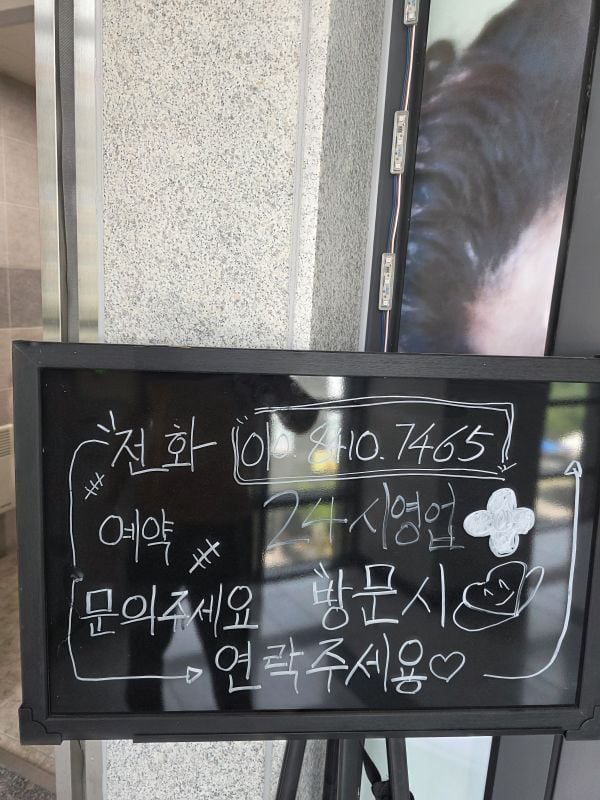 전화 010.8410.7465
예약 24시영업
문의주세요 방문시
연락주세용♡